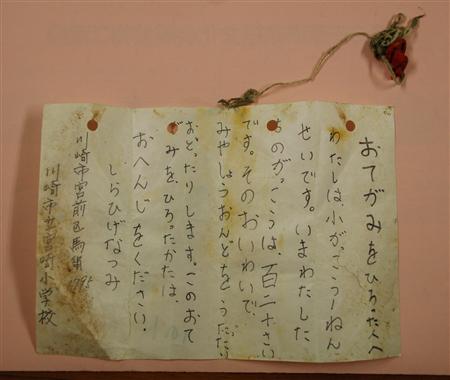 おてがみをひろった人へ
わたしは、小がっこう一ねん
せいです。いまわたした
ちのがっこうは、百二十さい
です。そのおいわいで、
みやしょうおんどを、うたったり
おどったりします。このおて
がみを、ひろったかたは、
おへんじをください。
しらひげなつみ
川崎市宮前区馬絹
川崎市立宮崎小学校